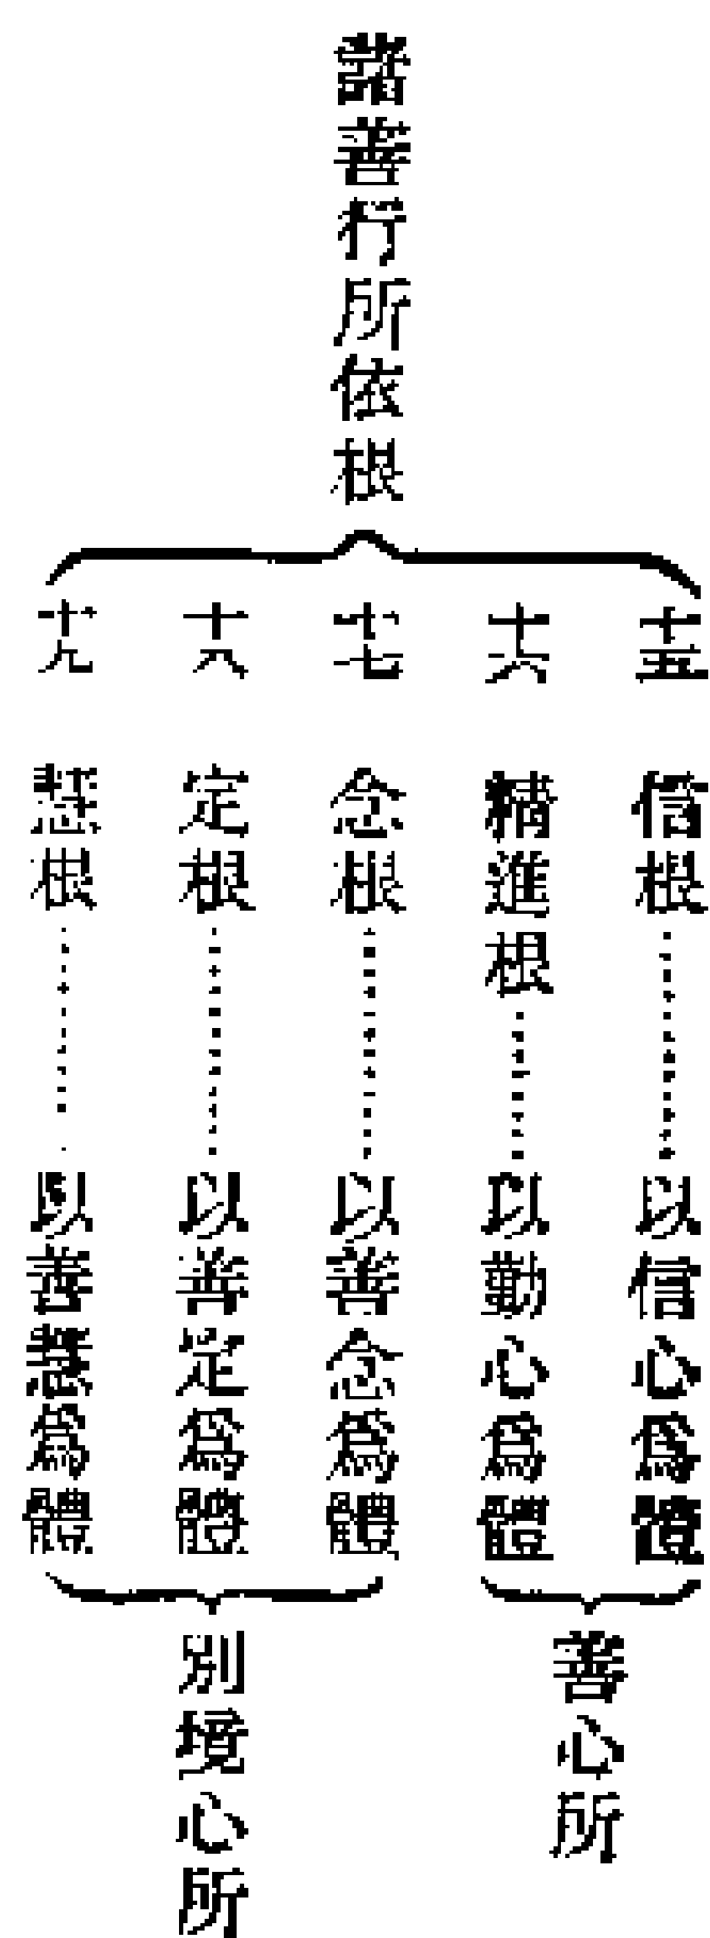 諸善行所依根
十五　信根………以信心爲體
十六　精進根……以勤心爲體
十七　念根………以善念爲體
十八　定根………以善定爲體
十九　慧根………以善慧爲體
善心所
別境心所